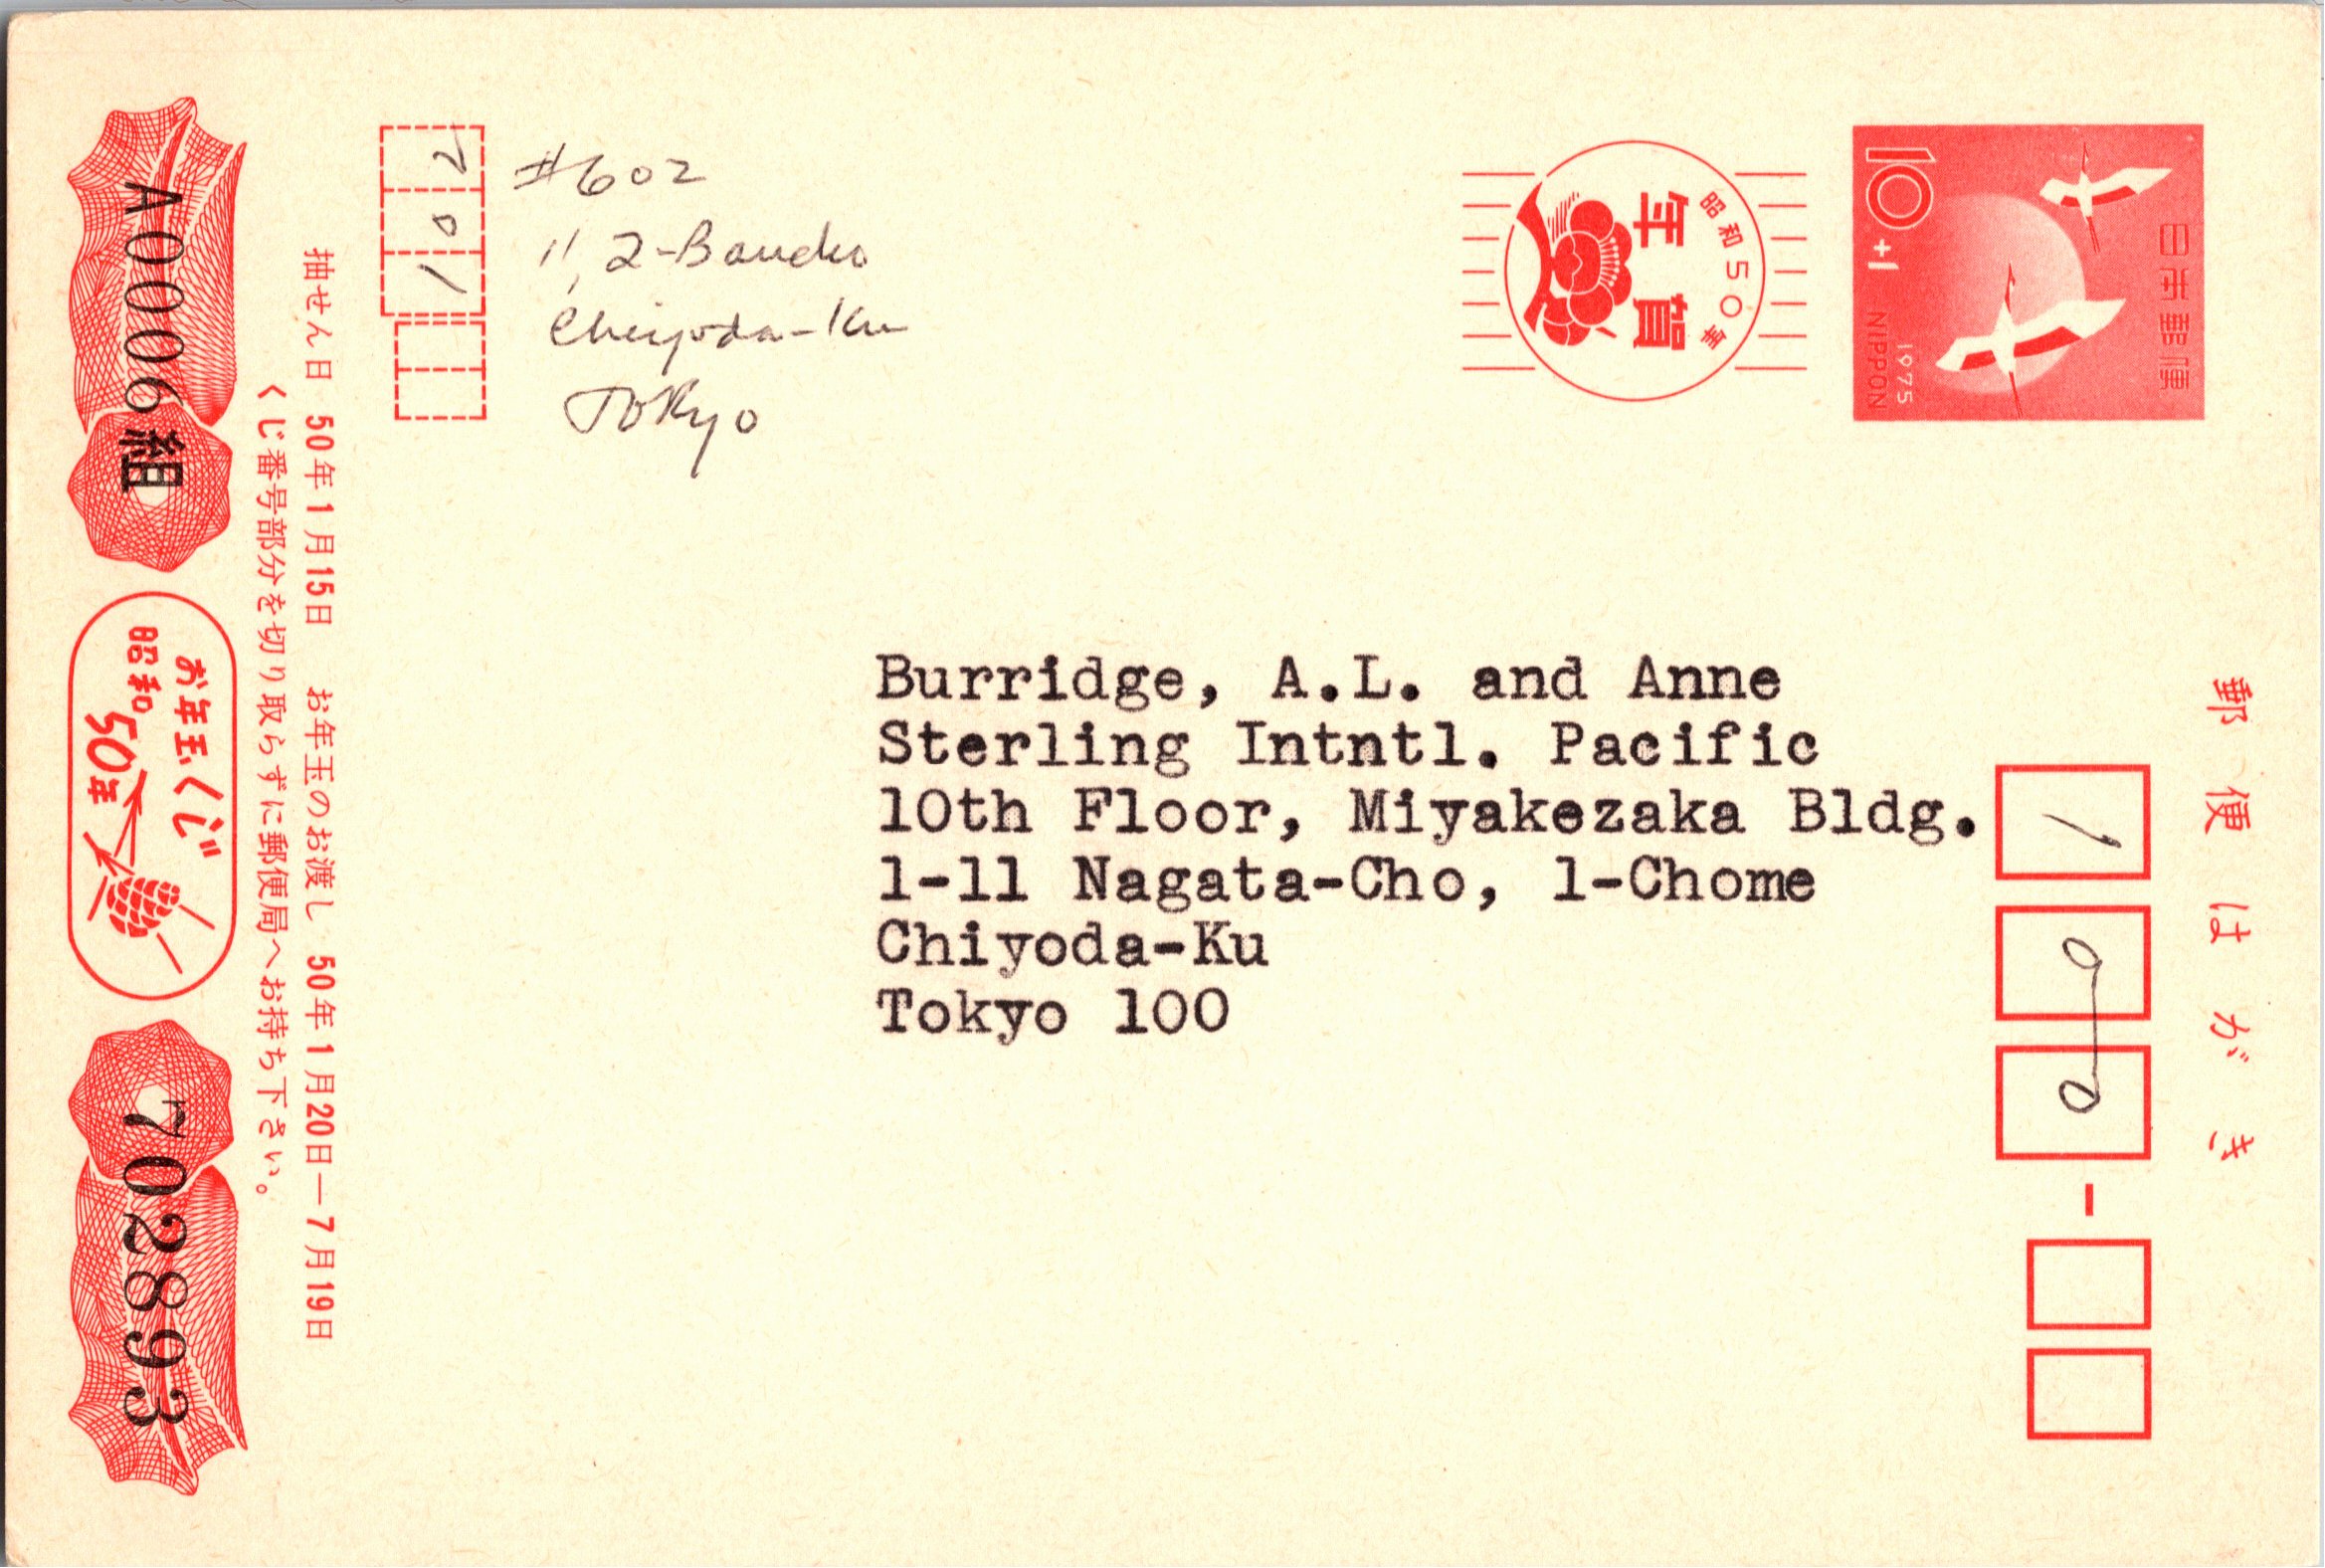 #602
11, 2-Bancho
Chiyoda-Ku
Tokyo
昭和50年
年賀
10+1
NIPPON
1975
日本郵便
郵便はがき
Burridge, A.L. and Anne
Sterling Intntl. Pacific
10th Floor, Miyakezaka Bldg.
1-11 Nagata-Cho, 1-Chome
Chiyoda-Ku
Tokyo 100
1 0 0 -
抽せん日 50年1月15日 お年玉のお渡し 50年1月20日—7月19日
くじ番号部分を切り取らずに郵便局へお持ち下さい。
A0006組
お年玉くじ
昭和50年
702893